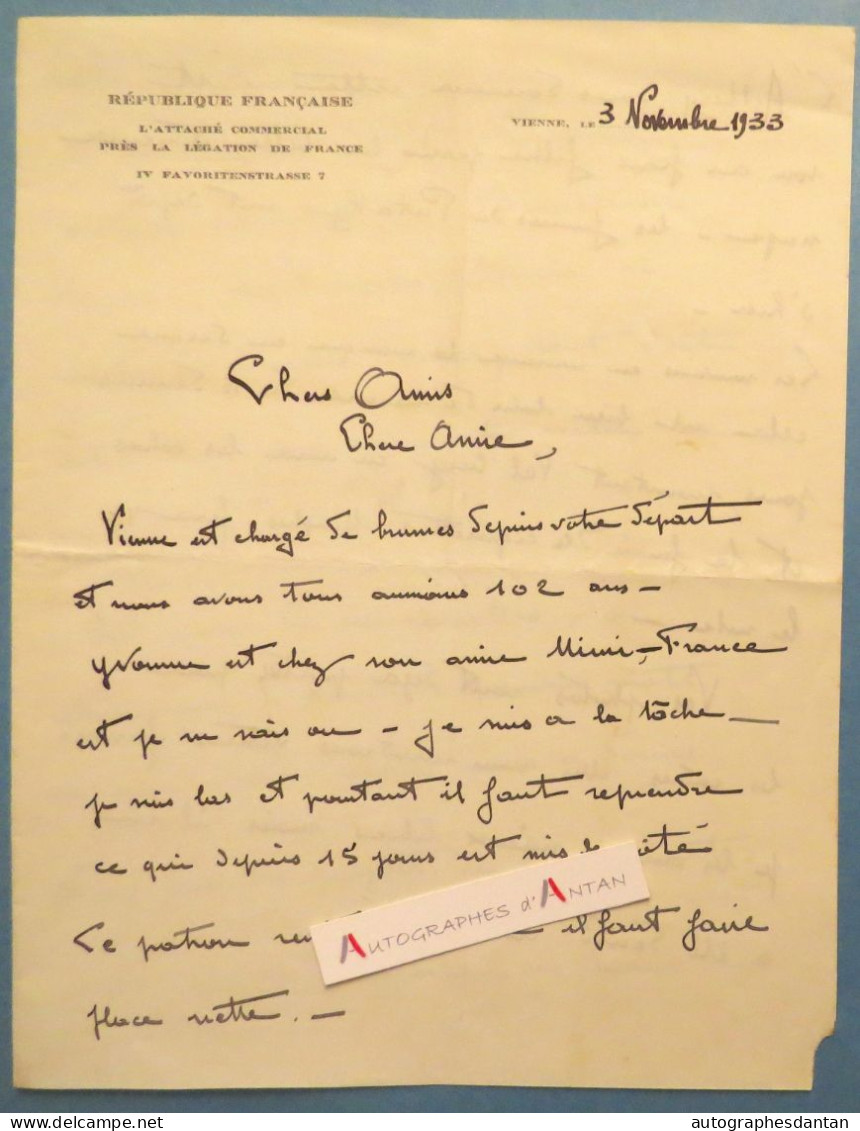 RÉPUBLIQUE FRANÇAISE
L'ATTACHÉ COMMERCIAL
PRÈS LA LÉGATION DE FRANCE
IV FAVORITENSTRASSE 7
VIENNE, LE 3 Novembre 1933
Chers Amis
Chere Amie,
Vienne est chargé de brumes depuis votre départ
et nous avons tous aumoins 102 ans –
Yvonne est chez son amie Mimi – France
est je ne sais ou – je suis a la tâche –
je suis las et pourtant il faut reprendre
ce qui depuis 15 jours est mis côté
Le patron il faut faire
place nette. –
AUTOGRAPHES d'ANTAN
delcampe.net
autographesdantan